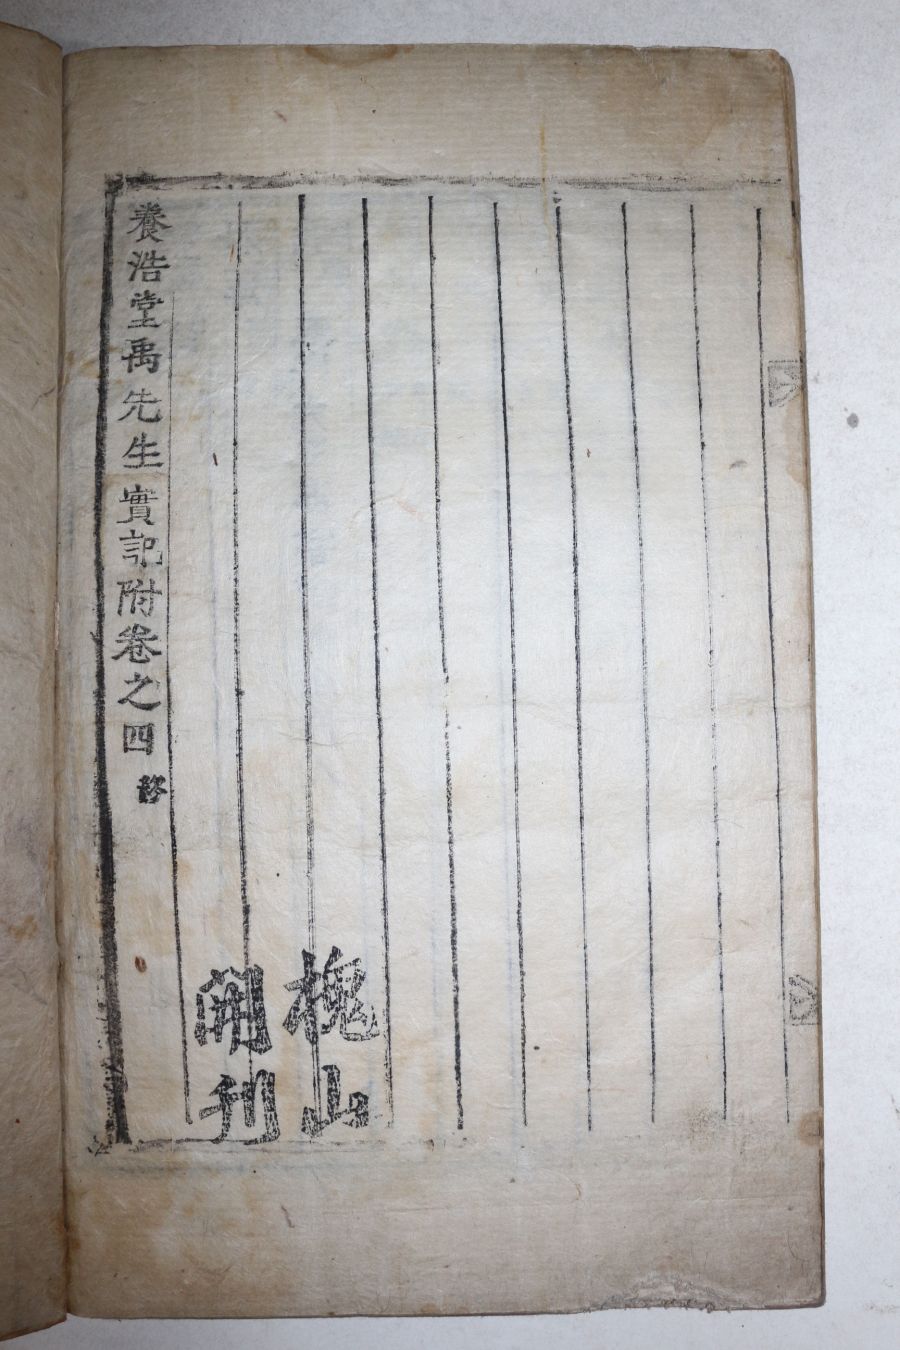 槐山
開刊
養浩堂禹先生實記附卷之四終